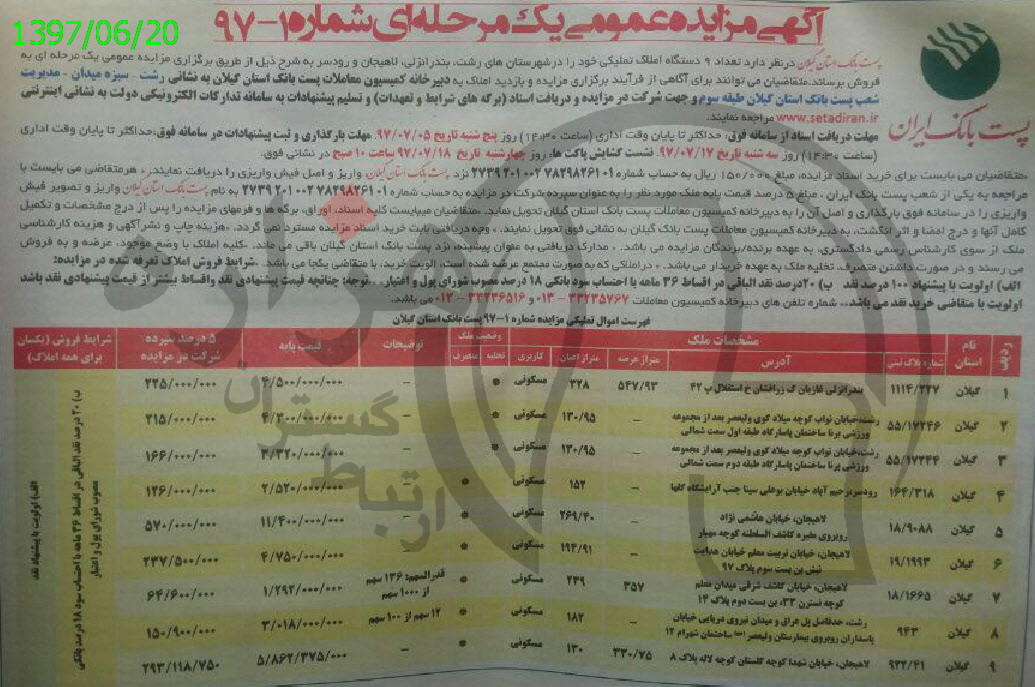 1397/06/20
آگهی مزایده عمومی یک مرحله‌ای شماره ۱-۹۷
پست بانک ایران
پست بانک استان گیلان در نظر دارد تعداد ۹ دستگاه املاک تملیکی خود را در شهرستان های رشت، بندرانزلی، لاهیجان و رودسر به شرح ذیل از طریق برگزاری مزایده عمومی یک مرحله ای به
فروش برساند.متقاضیان می توانند برای آگاهی از فرآیند برگزاری مزایده و بازدید املاک به دبیرخانه کمیسیون معاملات پست بانک استان گیلان به نشانی رشت - سبزه میدان - مدیریت
شعب پست بانک استان گیلان طبقه سوم و جهت شرکت در مزایده و دریافت اسناد (برگه های شرایط و تعهدات) و تسلیم پیشنهادات به سامانه تدارکات الکترونیکی دولت به نشانی اینترنتی
www.setadiran.ir مراجعه نمایند.
مهلت دریافت اسناد از سامانه فوق: حداکثر تا پایان وقت اداری (ساعت ۱۴:۳۰) روز پنج شنبه تاریخ ۹۷/۰۷/۰۵. مهلت بارگذاری و ثبت پیشنهادات در سامانه فوق:حداکثر تا پایان وقت اداری
(ساعت ۱۴:۳۰) روز سه شنبه تاریخ ۹۷/۰۷/۱۷. نشست گشایش پاکت ها: روز چهارشنبه تاریخ ۹۷/۰۷/۱۸ ساعت ۱۰ صبح در نشانی فوق.
متقاضیان می بایست برای خرید اسناد مزایده، مبلغ ۱۵۰/۰۰۰ ریال به حساب شماره نزد پست بانک استان گیلان، واریز و اصل فیش واریزی را دریافت نمایند. هر متقاضی می بایست با
مراجعه به یکی از شعب پست بانک ایران، مبلغ ۵ درصد قیمت پایه ملک مورد نظر را به عنوان سپرده شرکت در مزایده به حساب شماره به نام پست بانک استان گیلان واریز و تصویر فیش
واریزی را در سامانه فوق بارگذاری و اصل آن را به دبیرخانه کمیسیون معاملات پست بانک استان گیلان تحویل نماید. متقاضیان میبایست کلیه اسناد، اوراق، برگه ها و فرمهای مزایده را پس از درج مشخصات و تکمیل
کامل آنها و درج امضا و اثر انگشت، به دبیرخانه کمیسیون معاملات پست بانک گیلان به نشانی فوق تحویل نمایند. وجه دریافتی بابت خرید اسناد مزایده مسترد نمی گردد. هزینه چاپ و نشر آگهی و هزینه کارشناسی
ملک از سوی کارشناس رسمی دادگستری، به عهده برنده/برندگان مزایده می باشد. مدارک دریافتی به عنوان پیشینه، نزد پست بانک استان گیلان باقی می ماند. کلیه املاک با وضع موجود، عرضه و به فروش
می رسند و در صورت داشتن متصرف، تخلیه ملک به عهده خریدار می باشد. در املاکی که به صورت مجتمع عرضه شده است، الویت خرید، با متقاضی یکجا می باشد. شرایط فروش املاک تعرفه شده در مزایده:
الف) اولویت با پیشنهاد ۱۰۰ درصد نقد ب) ۲۰ درصد نقد الباقی در اقساط ۳۶ ماهه با احتساب سود بانکی ۱۸ درصد مصوب شورای پول و اعتبار. توجه: چنانچه قیمت پیشنهادی نقد و اقساط بیشتر از قیمت پیشنهادی نقد باشد
اولویت با متقاضی خرید نقد می باشد. شماره تلفن های دبیرخانه کمیسیون معاملات ۳۳۲۳۵۷۶۷-۰۱۳ و ۳۳۲۴۶۵۱۶-۰۱۳ می باشد.
فهرست اموال تملیکی مزایده شماره ۱-۹۷ پست بانک استان گیلان
ردیف نام استان مشخصات ملک وضعیت ملک توضیحات قیمت پایه ۵ درصد سپرده شرکت در مزایده شرایط فروش (یکسان برای همه املاک)
شماره پلاک ثبتی آدرس متراژ عرصه متراژ اعیان کاربری تخلیه متصرف
۱ گیلان ۱۱۱۴/۲۲۷ بندرانزلی غازیان ک زرافشان خ استقلال پ ۴۲ ۵۴۷/۹۳ ۳۲۸ مسکونی * - ۴/۵۰۰/۰۰۰/۰۰۰ ۲۲۵/۰۰۰/۰۰۰
۲ گیلان ۵۵/۱۷۲۴۶ رشت،خیابان نواب کوچه میلاد کوی ولیعصر بعد از مجموعه ورزشی برنا ساختمان پاسارگاد طبقه اول سمت شمالی - ۱۳۰/۹۵ مسکونی * - ۴/۳۰۰/۰۰۰/۰۰۰ ۲۱۵/۰۰۰/۰۰۰
۳ گیلان ۵۵/۱۷۲۴۴ رشت،خیابان نواب کوچه میلاد کوی ولیعصر بعد از مجموعه ورزشی برنا ساختمان پاسارگاد طبقه دوم سمت شمالی - ۱۳۰/۹۵ مسکونی * - ۳/۳۲۰/۰۰۰/۰۰۰ ۱۶۶/۰۰۰/۰۰۰
۴ گیلان ۱۶۴/۳۱۸ رودسر رحیم آباد خیابان بوعلی سینا جنب آرایشگاه - ۱۵۲ مسکونی * - ۲/۵۲۰/۰۰۰/۰۰۰ ۱۲۶/۰۰۰/۰۰۰
۵ گیلان ۱۸/۹۰۸۸ لاهیجان، خیابان هاشمی نژاد روبروی مقبره کاشف السلطنه کوچه مهیار ۲۶۹/۴۰ مسکونی * - ۱۱/۴۰۰/۰۰۰/۰۰۰ ۵۷۰/۰۰۰/۰۰۰
۶ گیلان ۱۹/۱۹۹۳ لاهیجان، خیابان تربیت معلم خیابان هدایت نبش بن بست سوم پلاک ۹۷ ۱۹۴/۹۱ مسکونی * - ۴/۷۵۰/۰۰۰/۰۰۰ ۲۳۷/۵۰۰/۰۰۰
۷ گیلان ۱۸/۱۶۶۵ لاهیجان، خیابان کاشف شرقی میدان معلم کوچه نسترن ۳۳، بن بست دوم پلاک ۱۴ ۳۵۷ ۲۳۹ مسکونی * قدرالسهم: ۱۳۶ سهم از ۱۰۰۰ سهم ۱/۲۹۲/۰۰۰/۰۰۰ ۶۴/۶۰۰/۰۰۰
۸ گیلان ۹۴۳ رشت، حدفاصل پل عراق و میدان نیروی دریایی خیابان پاسداران روبروی بیمارستان ولیعصر ساختمان شهرام ۱۲ ۱۸۲ مسکونی * ۱۲ سهم از ۱۰۰ سهم ۳/۰۱۸/۰۰۰/۰۰۰ ۱۵۰/۹۰۰/۰۰۰
۹ گیلان ۹۳۲/۴۱ لاهیجان، خیابان شهدا کوچه گلستان کوچه لاله پلاک ۸ ۳۳۰/۷۵ ۱۳۰ مسکونی * - ۵/۸۶۲/۳۷۵/۰۰۰ ۲۹۳/۱۱۸/۷۵۰
الف) اولویت با پیشنهاد نقد
ب) ۲۰ درصد نقد الباقی در اقساط ۳۶ ماهه با احتساب سود ۱۸ درصد بانکی
مصوب شورای پول و اعتبار
هزاره
گستران
ارتباط